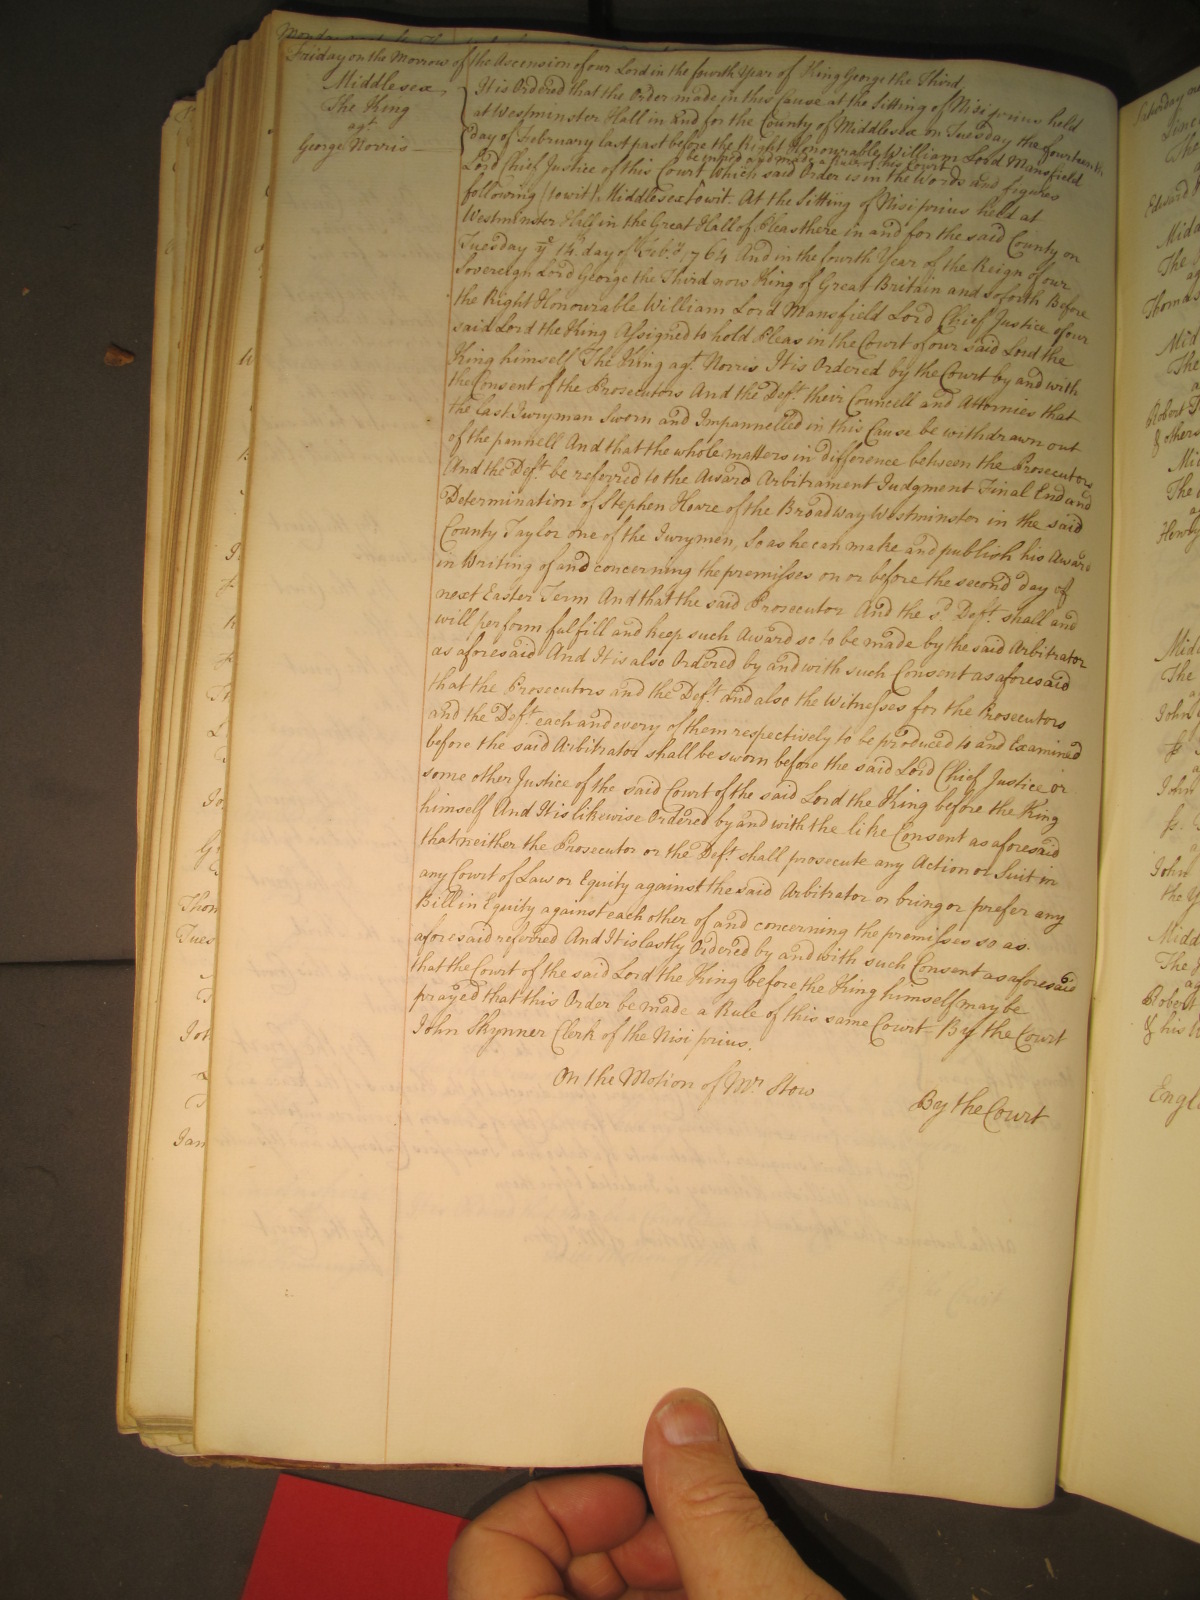 Friday on the Morrow of the Ascension of our Lord in the fourth Year of King George the Third
Middlesex
The King
agt.
George Norris
It is Ordered that the Order made in this Cause at the Sitting of Nisi prius held
at Westminster Hall in and for the County of Middlesex on Tuesday the fourteenth
day of February last past before the Right Honourably William Lord Mansfield
be made a Rule of this Court
Lord Chief Justice of this Court Which said Order is in the Words and figures
following (towit) Middlesex towit. At the Sitting of Nisi prius held at
Westminster Hall in the Great Hall of Pleas there in and for the said County on
Tuesday ye 14th. day of Feb.ry 1764 And in the fourth Year of the Reign of our
Sovereign Lord George the Third now King of Great Britain and so forth Before
the Right Honourable William Lord Mansfield Lord Chief Justice of our
said Lord the King Assigned to hold Pleas in the Court of our said Lord the
King himself The King agt. Norris It is Ordered by the Court by and with
the Consent of the Prosecutors And the Deft. their Councell and Attornies that
the Last Juryman Sworn and Impannelled in this Cause be withdrawn out
of the pannell And that the whole matters in difference between the Prosecutors
And the Deft. be referred to the Award Arbitrament Judgment Final End and
Determination of Stephen Hoare of the Broadway Westminster in the said
County Taylor one of the Jurymen, so as he can make and publish his Award
in Writing of and concerning the premisses on or before the second day of
next Easter Term And that the said Prosecutor And the sd. Deft. shall and
will perform fulfill and keep such Award so to be made by the said Arbitrator
as aforesaid And It is also Ordered by and with such Consent as aforesaid
that the Prosecutors and the Deft. and also the Witnesses for the Prosecutors
and the Deft. each and every of them respectively to be produced to and Examined
before the said Arbitrator shall be sworn before the said Lord Chief Justice or
some other Justice of the said Court of the said Lord the King before the King
himself And It is likewise Ordered by and with the like Consent as aforesaid
that neither the Prosecutor or the Deft. shall prosecute any Action or Suit in
any Court of Law or Equity against the said Arbitrator or bring or prefer any
Bill in Equity against each other of and concerning the premisses so as
aforesaid referred And It is lastly Ordered by and with such Consent as aforesaid
that the Court of the said Lord the King before the King himself may be
prayed that this Order be made a Rule of this same Court By the Court
John Skynner Clerk of the Nisi prius.
On the Motion of Mr. Stow
By the Court